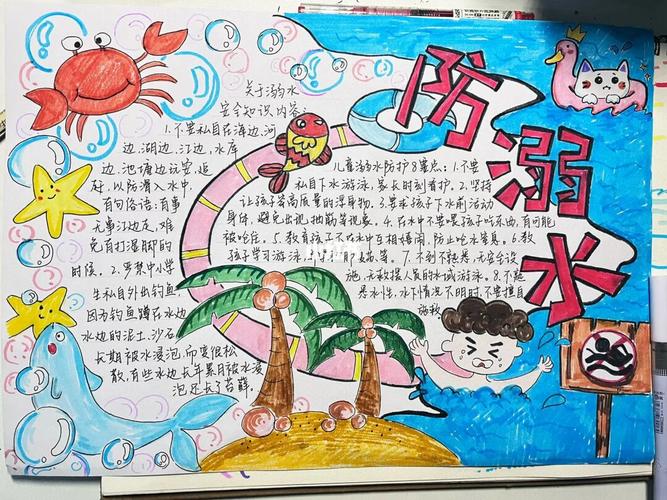 防溺水
关于溺水
安全知识内容:
1.不要私自在海边、河
边、湖边、江边、水库
边、池塘边玩耍、追
赶,以防滑入水中,
有句俗语:有事
无事江边走,难
免有打湿脚的
时候。2.严禁中小学
生私自外出钓鱼,
因为钓鱼蹲在水边
水边的泥土、沙石
长期被水浸泡,而变得松
散,有些水边长年累月被水浸
泡还长了苔藓。
儿童溺水防护8要点:1.不要
私自下水游泳,家长时刻看护。2.坚持
让孩子穿高质量的浮身物。3.要求孩子下水前活动
身体,避免出现抽筋等现象。4.在水中不要喂孩子吃东西,有可能
被呛住。5.教育孩子不在水中互相嬉闹,防止呛水窒息。6.教
孩子学习游泳
等。7.不到不熟悉、无安全设
施、无救援人员的水域游泳。8.不熟
悉水性、水下情况不明时,不要擅自
施救